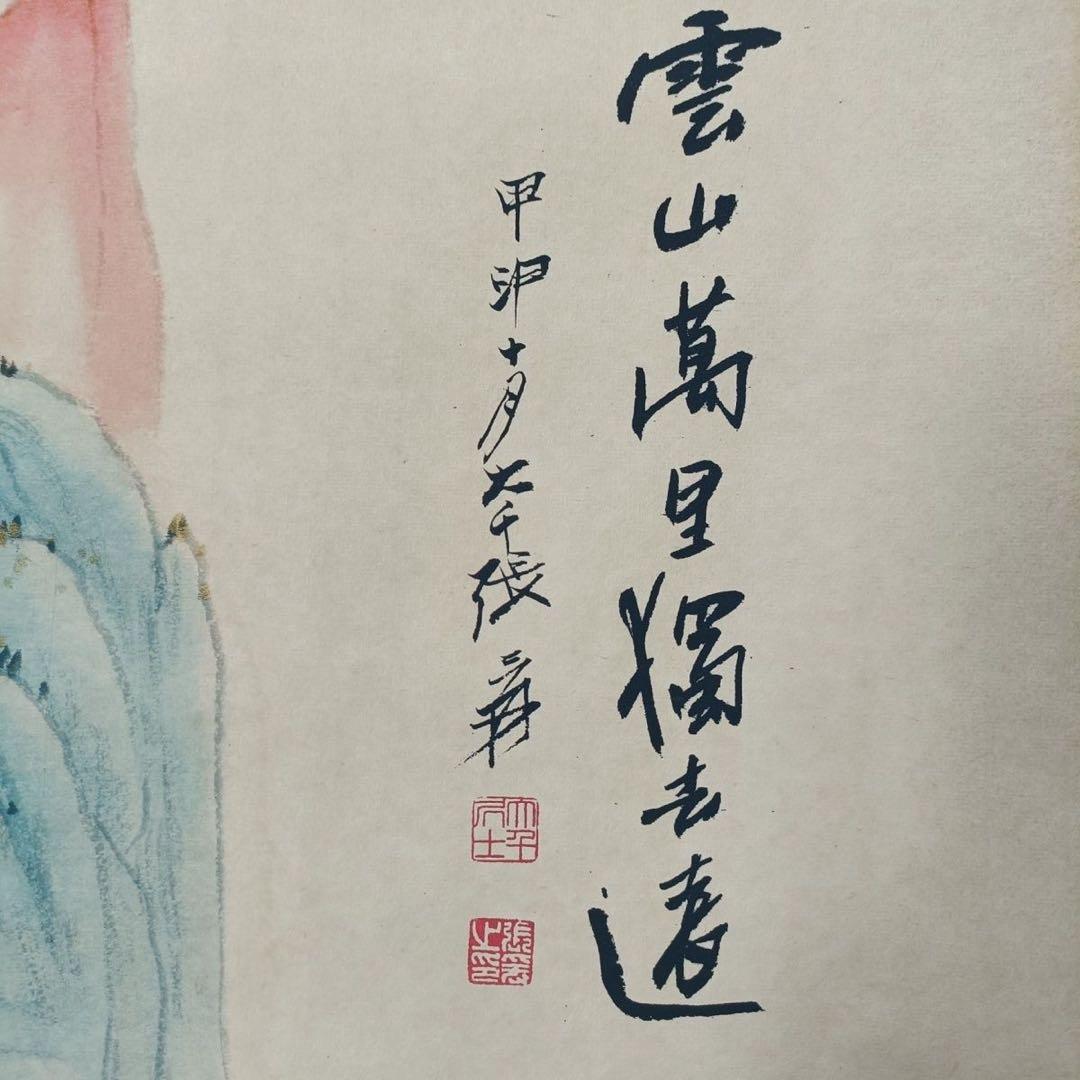 雲山萬里獨去遠
甲卯十月大千張爰
大千居士
張爰之印